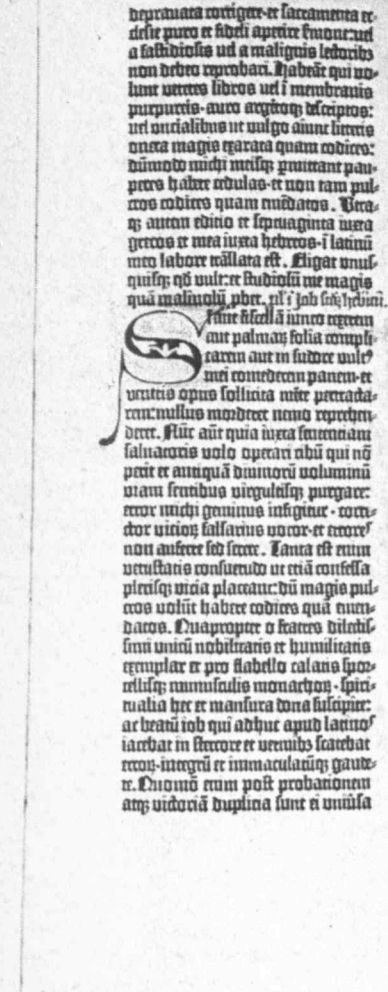 deprauata corrigere·et sacramenta ec-
clesie puro et fideli aperire sermone:uel
a fastidiosis uel a malignis lectoribꝫ
non debeo reprobari. Habeāt qui vo-
lunt veteres libros uel ī membranis
purpureis·auro argētoqꝫ descriptos:
uel uncialibus ut vulgo aiunt litteris
onera magis exarata quam codices:
dūmodo michi meisqꝫ ꝑmittant pau-
peres habere cedulas·et non tam pul-
cros codices quam emēdatos. Vtra-
qꝫ autem editio et septuaginta iuxta
grecos et mea iuxta hebreos·ī latinū
meo labore trāslata est. Eligat unus-
quisqꝫ qd̄ vult:et studiosū me magis
quā maliuolū ꝓbet.
Si aūt fiscellā iunco texerem
aut palmaꝝ folia compli-
carem aut in sudore vult⁹
mei comederem panem·et
ventris opus sollicita mēte pertracta-
rem:nullus morderet nemo reprehen-
deret. Nūc aūt quia iuxta sententiam
saluatoris volo operari cibū qui nō
perit et antiquā diuinorū voluminū
viam sentibus virgultisqꝫ purgare:
error michi geminus infigitur·corre-
ctor vicioꝝ falsarius vocor·et errores
non auferre sed serere. Tanta est enim
vetustatis consuetudo ut eciā confessa
plerisqꝫ vicia placeant:dū magis pul-
cros volūt habere codices quā emen-
datos. Quapropter o fratres dilectis-
simi unicū nobilitatis et humilitatis
exemplar et pro flabello calatis spor-
tellisqꝫ munusculis monachoꝝ·spiri-
tualia hec et mansura dona suscipite:
ac beatū iob qui adhuc apud latinos
iacebat in stercore et vermibꝫ scatebat
erroꝝ·integrū et immaculatūqꝫ gaude-
te. Quomō enim post probationem
atqꝫ victoriā duplicia sunt ei uniūsa